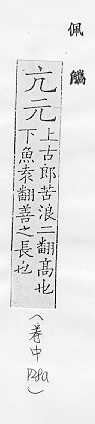 佩觿
亢元
上古郎苦浪二翻高也
下魚袁翻善之長也
(卷中 P28a)